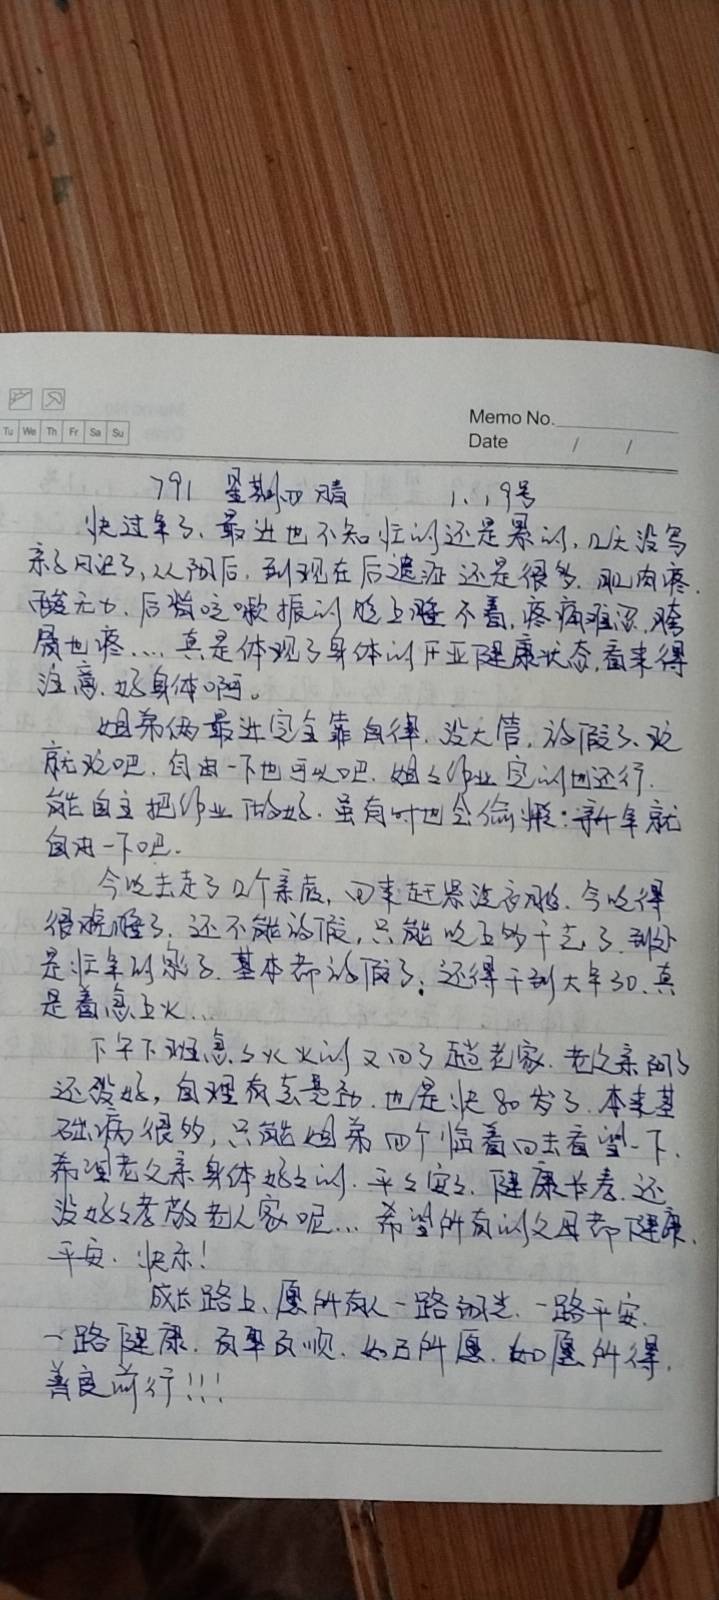 Memo No.
Tu We Th Fr Sa Su
Date / /
791 星期四 晴 1.19号
快过年了、最近也不知忙的还是累的，几天没写
亲子日记了，从阳后，到现在后遗症还是很多，肌肉疼，
酸无力，后背咳嗽振的晚上睡不着，疼痛难忍，胯
属也疼....真是体现了身体的开亚健康状态，看来得
注意，好身体啊。
姐弟俩最近完全靠自律，没大管，放假了、玩
就玩吧，自由一下也可以吧，姐姐作业完的也还行，
能自主把作业做好，虽有时也会偷懒：新年就
自由一下吧。
今晚去走了几个亲戚，回来赶累没夜跑，今晚得
很晚睡了，还不能放假，只能晚上多干点了，到处
是忙年的影子，基本都放假了；还得干到大年30、真
是着急上火...
下午下班急急火火的又回了趟老家，老父亲阳了
还没好，自理有点费劲，也是快80岁了，本来基
础病很多，只能姐弟四个临着回去看望一下，
希望老父亲身体好好的，平平安安，健康长寿，还
没好好孝敬老人家呢...希望所有的父母都健康、
平安、快乐！
成长路上、愿所有人一路阳光、一路平安、
一路健康，百事百顺，如己所愿，如愿所得，
善良前行！！！